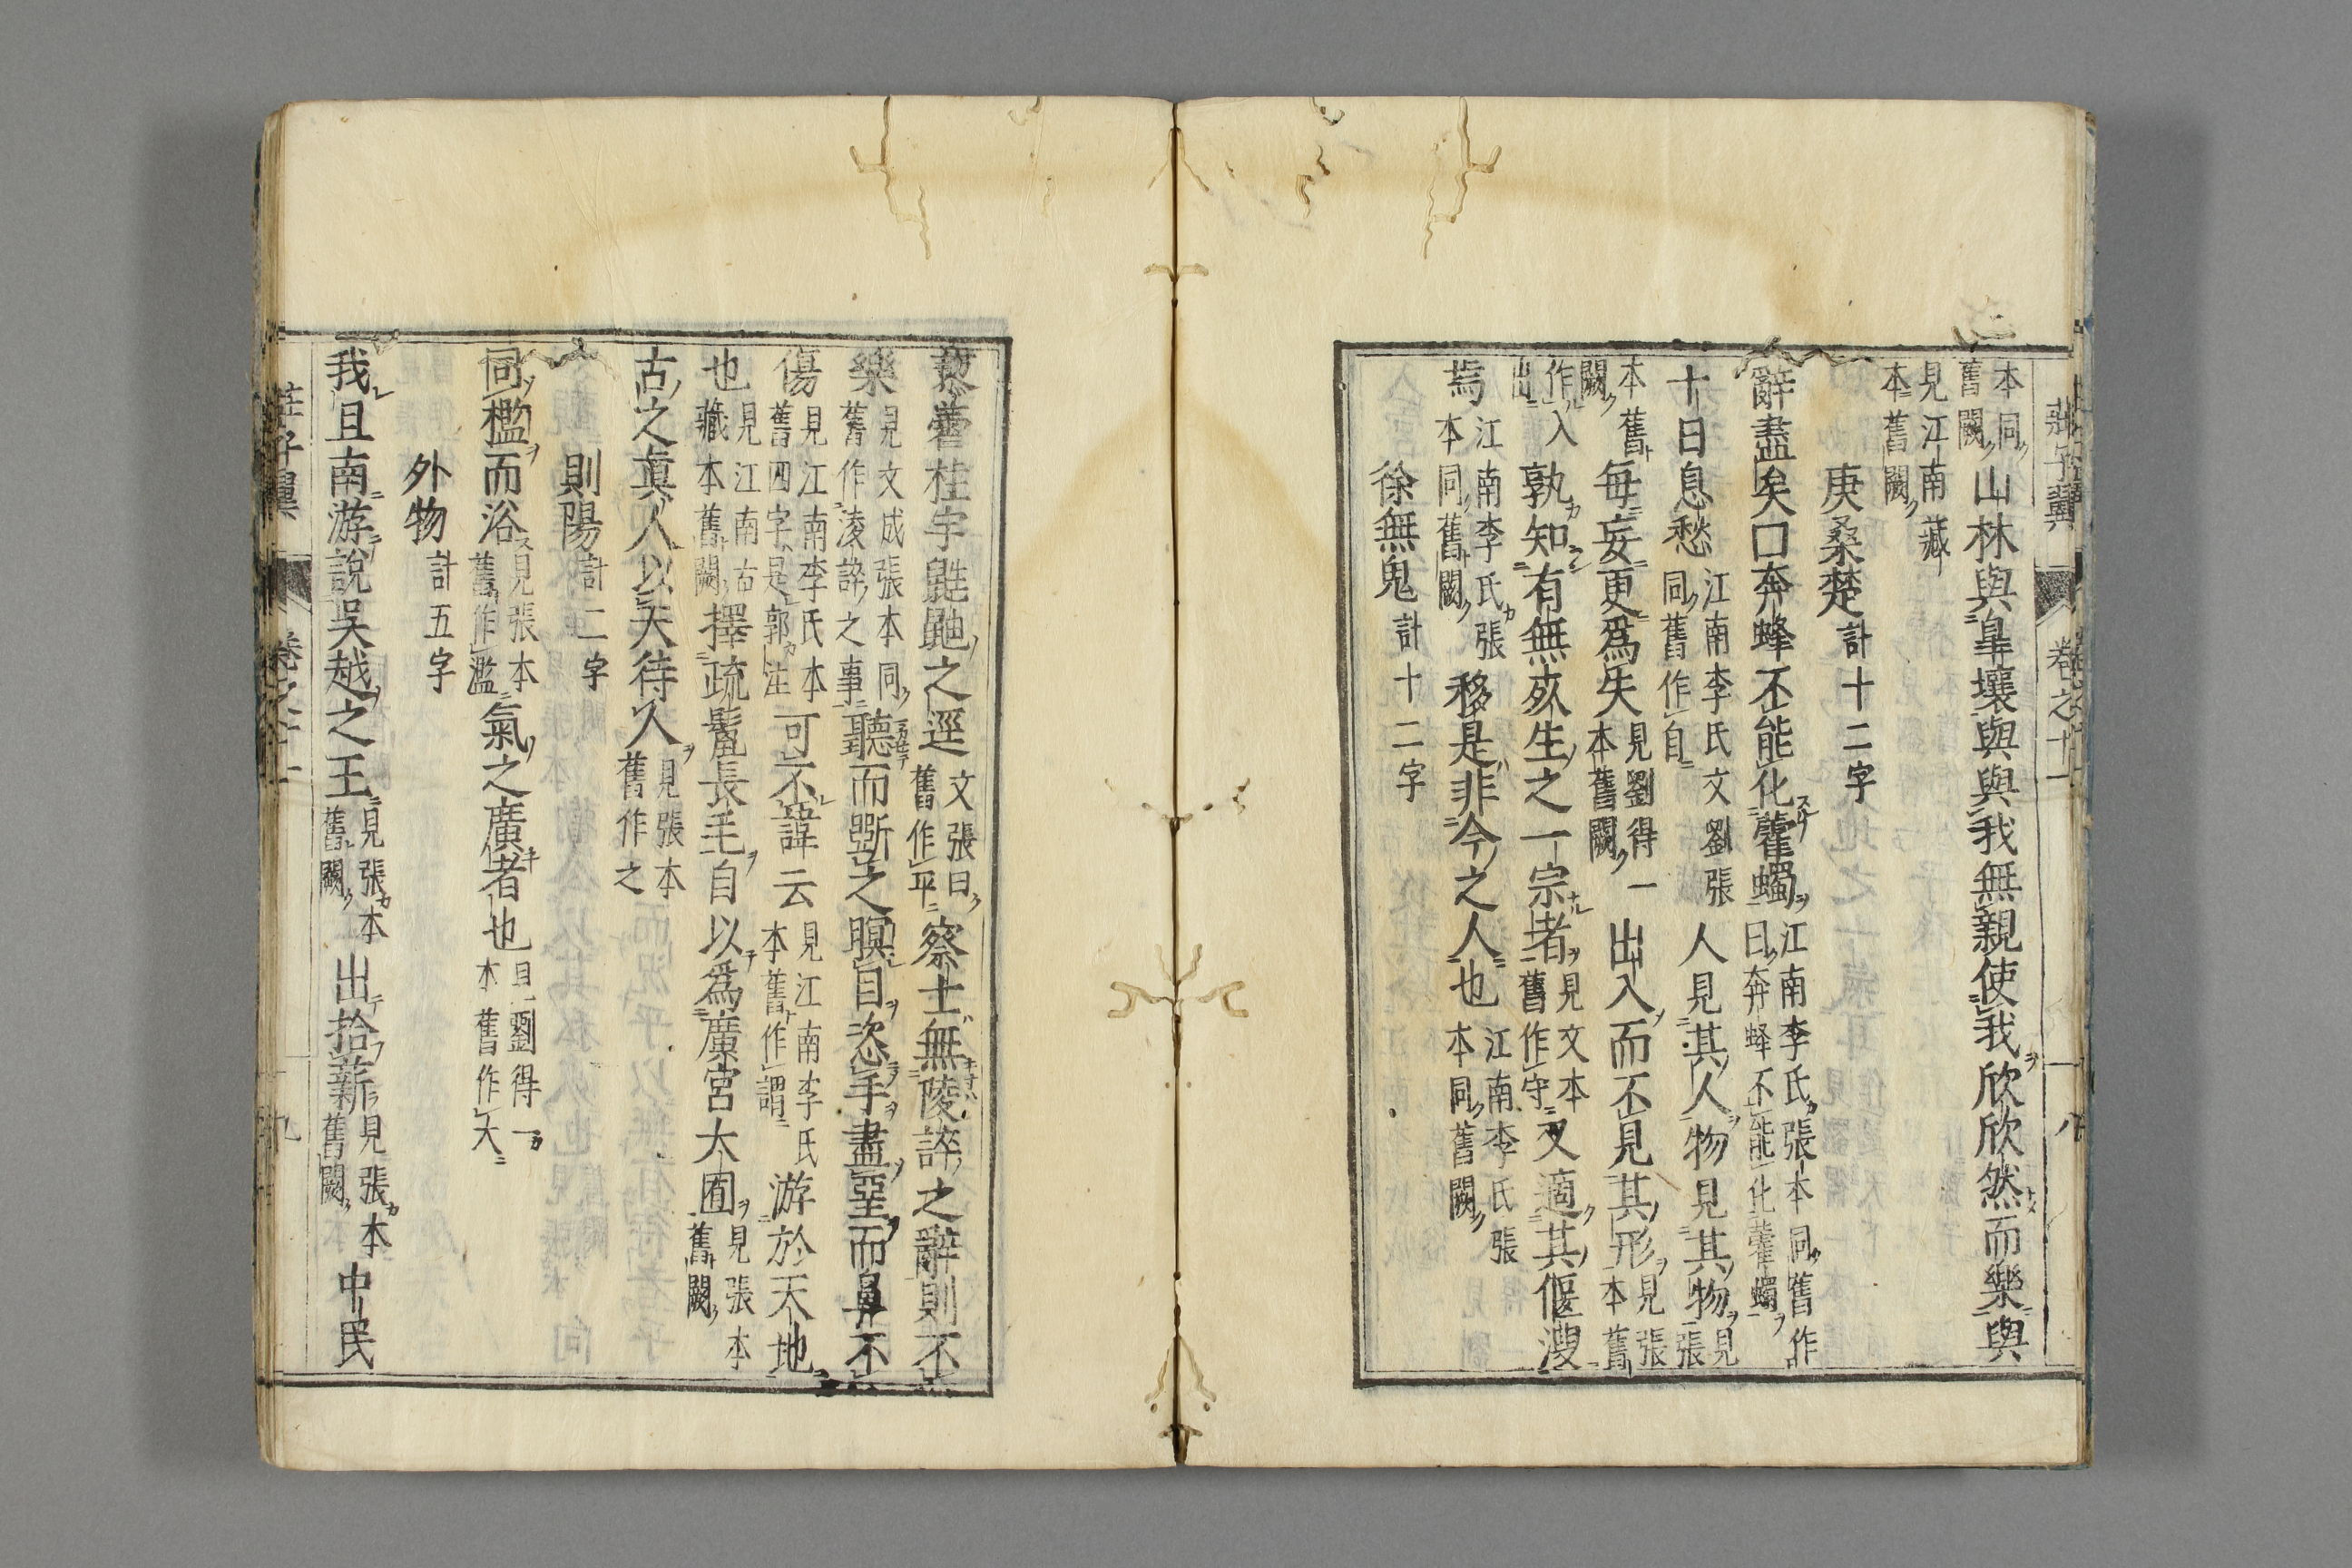 莊子翼 卷之十一 十八
本同舊闕山林與皐壤與與我無親使我欣欣然而樂與
見江南藏本舊闕
庚桑楚計十二字
辭盡矣曰奔蜂不能化藿蠋江南李氏張本同舊作曰奔蜂不能化藿蠋
十日息愁江南李氏文劉張同舊作自人見其人物見其物見張
本舊闕每妄更爲失見劉得一本舊闕出入而不見其形見張本舊
作入出孰知有無死生之一宗者見文本舊作守又適其偃溲
焉江南李氏張本同舊闕移是非今之人也江南李氏張本同舊闕
徐無鬼計十二字
藜藋柱宇鼪鼬之逕文張曰舊作平察士無陵誶之辭則不
樂見文成張本同舊作凌誶之事聽而斲之瞑目恣手盡堊而鼻不
傷見江南李氏本舊四字是郭注可不諱云見江南李氏本舊作謂游於天地
也見江南古藏本舊闕擇疏鬣長毛自以爲廣宮大囿見張本舊闕
古之眞人以天待人見張本舊作之
則陽計二字
同檻而浴見張本舊作濫氣之廣者也見劉得一本舊作大
外物計五字
我且南游說吳越之王見張本舊闕出拾薪見張本舊闕中民
莊子翼 卷之十一 十九